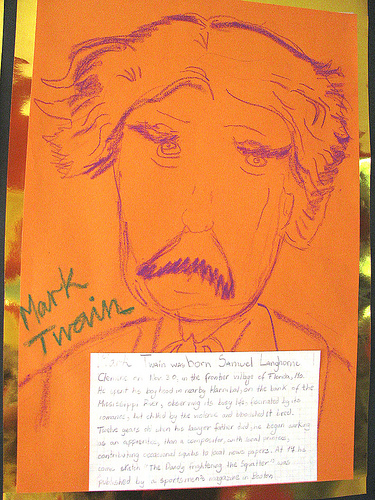 Mark
Twain
Twain was born Samuel Langhorne
Clemens on Nov 30, in the frontier village of Florida, Mo.
He spent his boyhood in nearby Hannibal, on the bank of the
Mississippi River, observing its busy life, fascinated by its
romance, but chilled by the violence and bloodshed it bred.
Twelve years old when his lawyer father died, he began working
as an apprentice, then a compositor, with local printers,
contributing occasional squibs to local news papers. At 17 his
comic sketch "The Dandy frightening the Squatter" was
published by a sportsmen's magazine in Boston